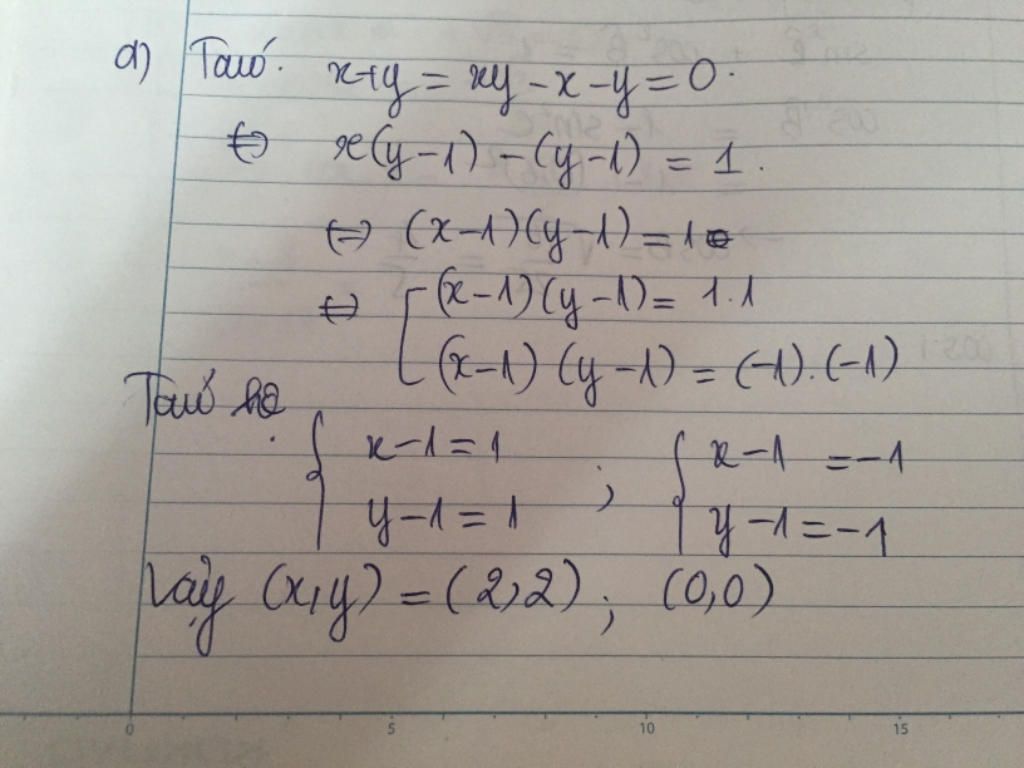 a) Ta có: x+y = xy - x - y = 0.
⇔ x(y-1) - (y-1) = 1.
⇔ (x-1)(y-1) = 1
⇔ [ (x-1)(y-1) = 1.1
(x-1)(y-1) = (-1).(-1)
Ta có hệ
{ x-1 = 1 ; { x-1 = -1
y-1 = 1 y-1 = -1
Vậy (x,y) = (2,2) ; (0,0)
0 5 10 15